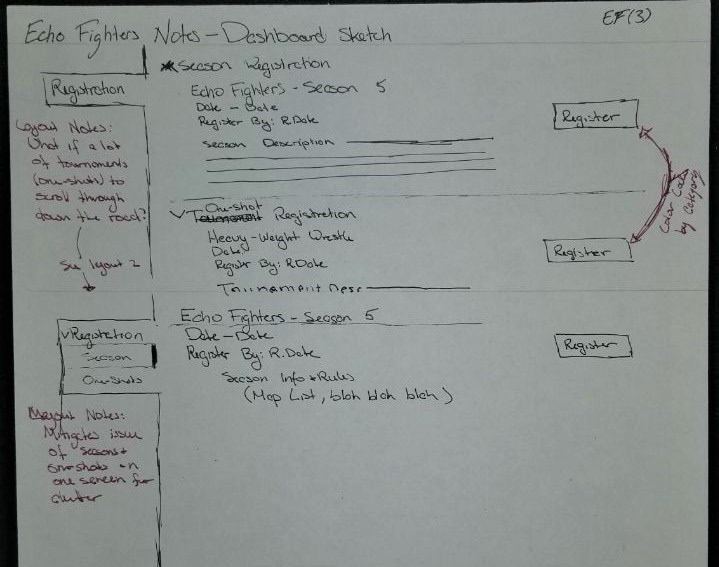 EF(3)
Echo Fighters Notes - Dashboard Sketch
Registration
Layout Notes:
What if a lot
of tournaments
(one-shots) to
scroll through
down the road?
See layout 2
*Season Registration
Echo Fighters - Season 5
Date - Date
Register By: R.Date
Season Description
Register
One-shot
Tournament Registration
Heavy-Weight Wrestle
Date
Register By: R.Date
Tournament Desc
Register
Color Code
by Category
Registration
Season
One-Shots
Layout Notes:
Mitigates issue
of seasons +
one-shots on
one screen for
clutter
Echo Fighters - Season 5
Date - Date
Register By: R.Date
Season Info + Rules
(Map List, blah blah blah)
Register